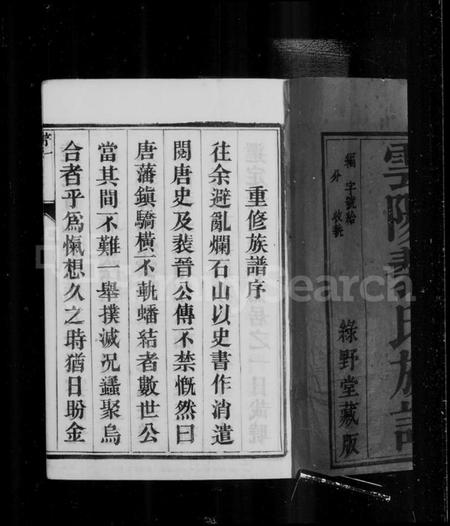 雲陽裴氏族譜
編 字號給
分 收執
綠野堂藏版
重修族譜序
往余避亂爛石山以史書作消遣
閱唐史及裴晉公傳不禁慨然曰
唐藩鎮驕橫不軌蟠結者數世公
當其間不難一舉撲滅况蟊聚烏
合者乎爲愾想久之時猶日盼金